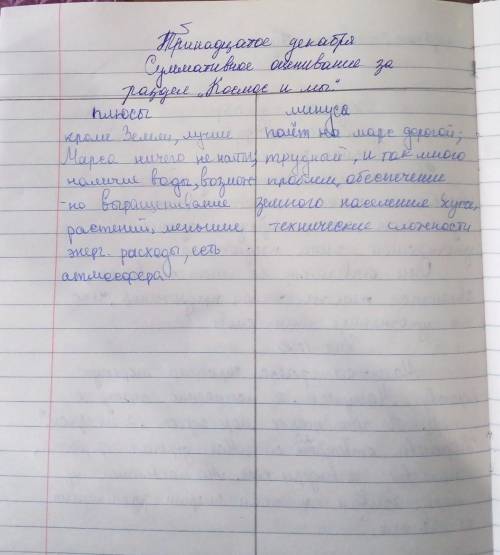 5
Тринадцатое декабря
Суммативное оценивание за
раздел „Космос и мы"
плюсы
кроме Земли, лучше
Марса ничего не найти,
наличие воды, возмож
-но выращивание
растений, меньшие
энерг. расходы, есть
атмосфера
минуса
полёт на марс дорогой;
трудный, и так много
проблем, обеспечение
земного населения
технические сложности